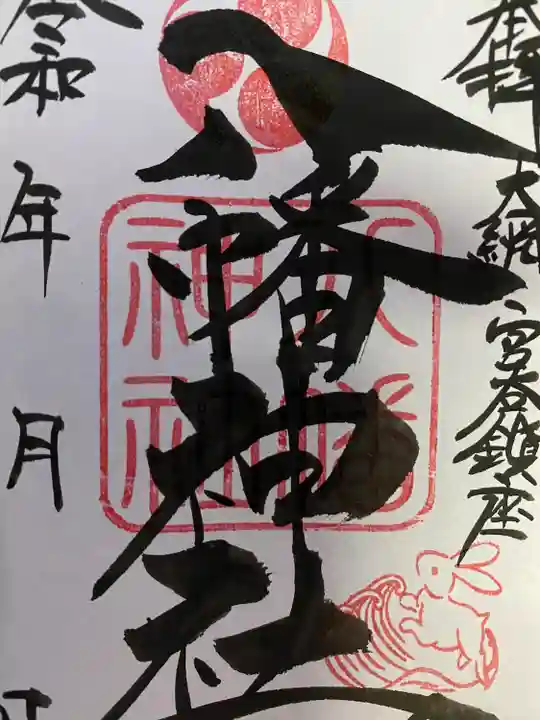 奉拝
大網 宮谷鎮座
八幡神社
八幡神社
令和 年 月